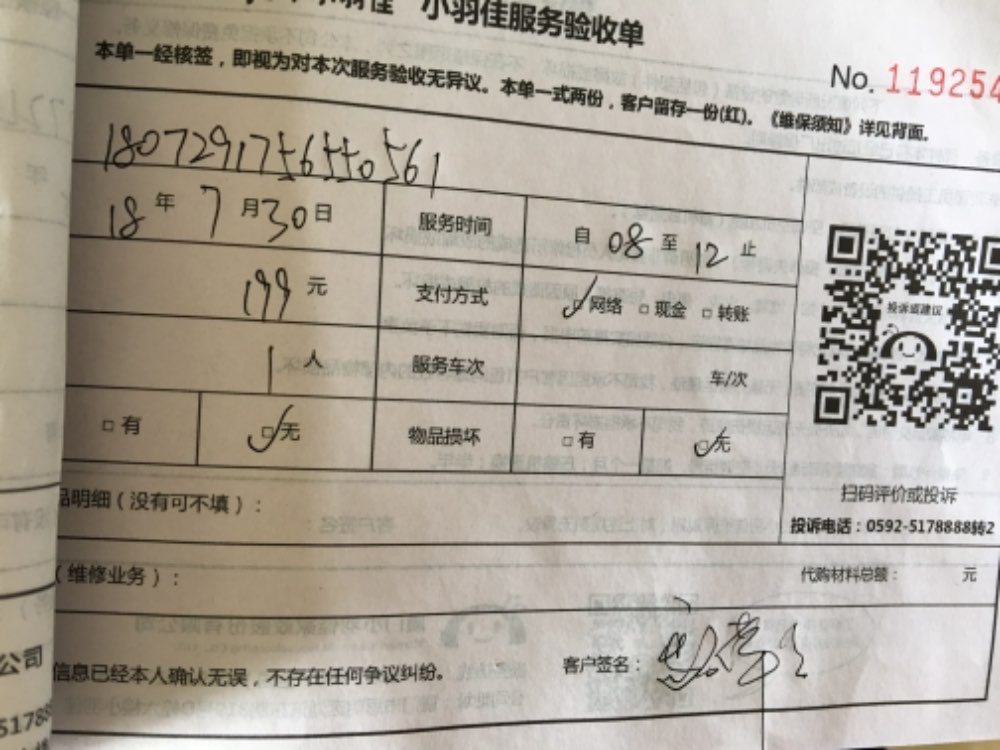 小羽佳服务验收单
本单一经核签，即视为对本次服务验收无异议。本单一式两份，客户留存一份(红)。《维保须知》详见背面。
No. 119254
1807291756550561
18 年 7 月 30 日 服务时间 自 08 至 12 止
199 元 支付方式 ☑网络 □现金 □转账
1人 服务车次 车/次
□有 ☑无 物品损坏 □有 ☑无
投诉或建议
扫码评价或投诉
投诉电话：0592-5178888转2
品明细（没有可不填）：
（维修业务）： 代购材料总额： 元
信息已经本人确认无误，不存在任何争议纠纷。 客户签名：
公司